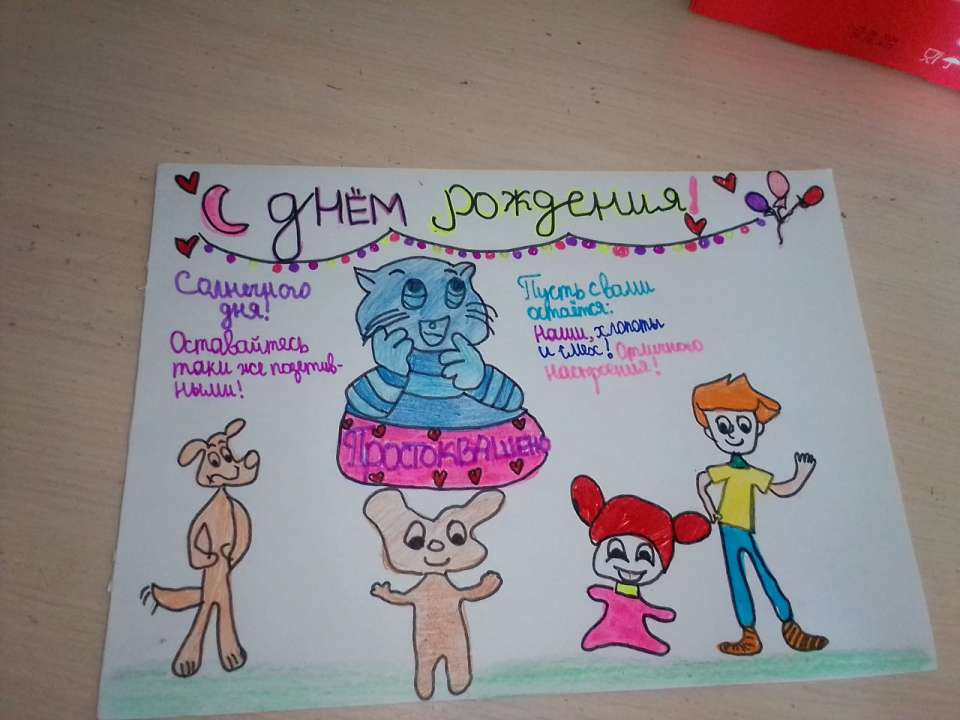 С днём рождения!
Солнечного
дня!
Оставайтесь
таки же позетив-
ными!
Пусть с вами
остаётся:
Наши, хлопоты
и смех! Отличного
настроения!
ПРОСТОКВАШЕНО